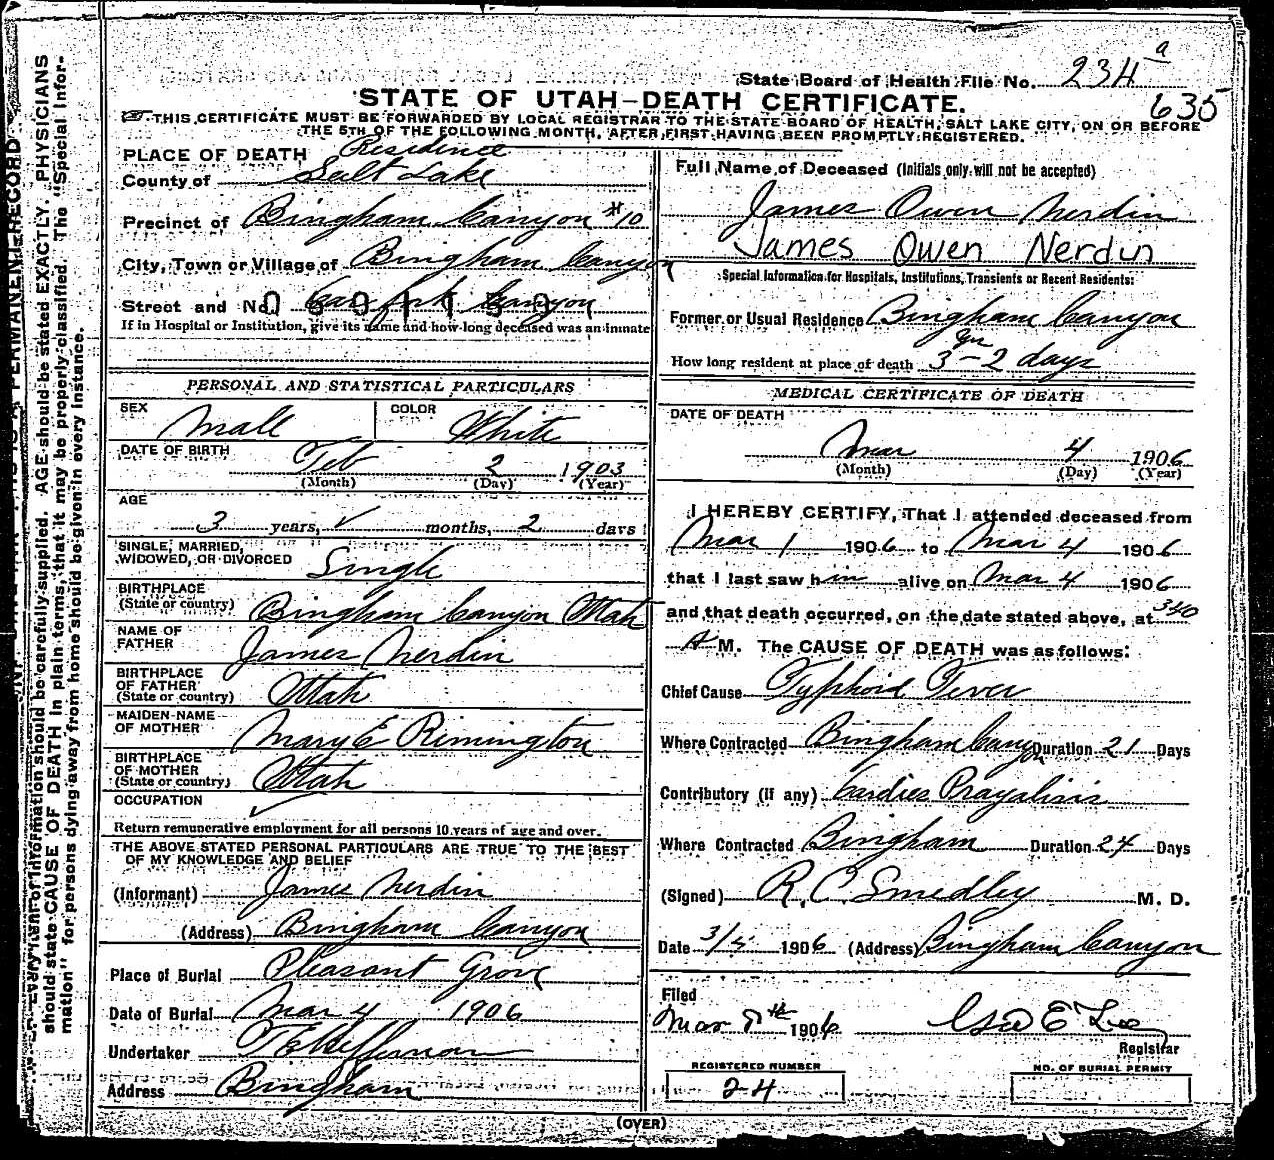 State Board of Health File No. 234 a
635
STATE OF UTAH—DEATH CERTIFICATE.
THIS CERTIFICATE MUST BE FORWARDED BY LOCAL REGISTRAR TO THE STATE BOARD OF HEALTH, SALT LAKE CITY, ON OR BEFORE
THE 5TH OF THE FOLLOWING MONTH, AFTER FIRST HAVING BEEN PROMPTLY REGISTERED.
PLACE OF DEATH Residence
County of Salt Lake
Precinct of Bingham Canyon #10
City, Town or Village of Bingham Canyon
Street and No. Carr fork Canyon
If in Hospital or Institution, give its name and how long deceased was an inmate
PERSONAL AND STATISTICAL PARTICULARS
SEX Male COLOR White
DATE OF BIRTH Feb 2 1903
(Month) (Day) (Year)
AGE
3 years, ✓ months, 2 days
SINGLE, MARRIED,
WIDOWED, OR DIVORCED Single
BIRTHPLACE
(State or country) Bingham Canyon Utah
NAME OF
FATHER James Nerdin
BIRTHPLACE
OF FATHER
(State or country) Utah
MAIDEN NAME
OF MOTHER Mary E Rimington
BIRTHPLACE
OF MOTHER
(State or country) Utah
OCCUPATION ✓
Return remunerative employment for all persons 10 years of age and over.
THE ABOVE STATED PERSONAL PARTICULARS ARE TRUE TO THE BEST
OF MY KNOWLEDGE AND BELIEF
(Informant) James Nerdin
(Address) Bingham Canyon
Place of Burial Pleasant Grove
Date of Burial Mar 4 1906
Undertaker
Address Bingham
Full Name of Deceased (Initials only will not be accepted)
James Owen Nerdin
James Owen Nerdin
Special Information for Hospitals, Institutions, Transients or Recent Residents:
Former or Usual Residence Bingham Canyon
How long resident at place of death 3 yrs - 2 days
MEDICAL CERTIFICATE OF DEATH
DATE OF DEATH
Mar 4 1906
(Month) (Day) (Year)
I HEREBY CERTIFY, That I attended deceased from
Mar 1 1906 to Mar 4 1906
that I last saw him alive on Mar 4 1906
and that death occurred, on the date stated above, at 340
A M. The CAUSE OF DEATH was as follows:
Chief Cause Typhoid Fever
Where Contracted Bingham Canyon Duration 21 Days
Contributory (if any) Cardies Prayalisis
Where Contracted Bingham Duration 24 Days
(Signed) R. C. Smedley M. D.
Date 3/4 1906 (Address) Bingham Canyon
Filed
Mar 8th 1906 Geo E Lee
Registrar
REGISTERED NUMBER
24
NO. OF BURIAL PERMIT
(OVER)
should be carefully supplied. AGE should be stated EXACTLY. PHYSICIANS
should state CAUSE OF DEATH in plain terms, that it may be properly classified. The "Special Infor-
mation" for persons dying away from home should be given in every instance.